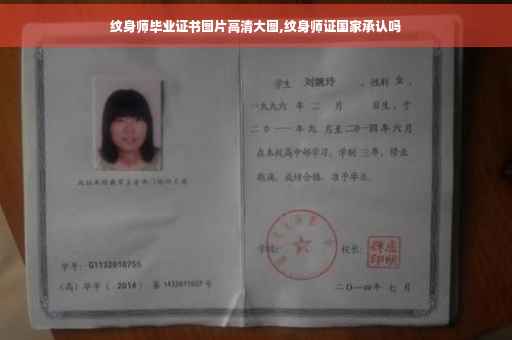 纹身师毕业证书图片高清大图,纹身师证国家承认吗
学生 刘婉玲 ,性别 女 ,
一九九六 年 二 月 日生,于
二〇一一年九 月至二〇一四年六月
在本校高中部学习,学制 三年,修业
期满,成绩合格,准予毕业。
学校: 校长:
二〇一四年 七 月
学号: G1132010755
(高) 毕字 ( 2014 ) 第 1432011027 号